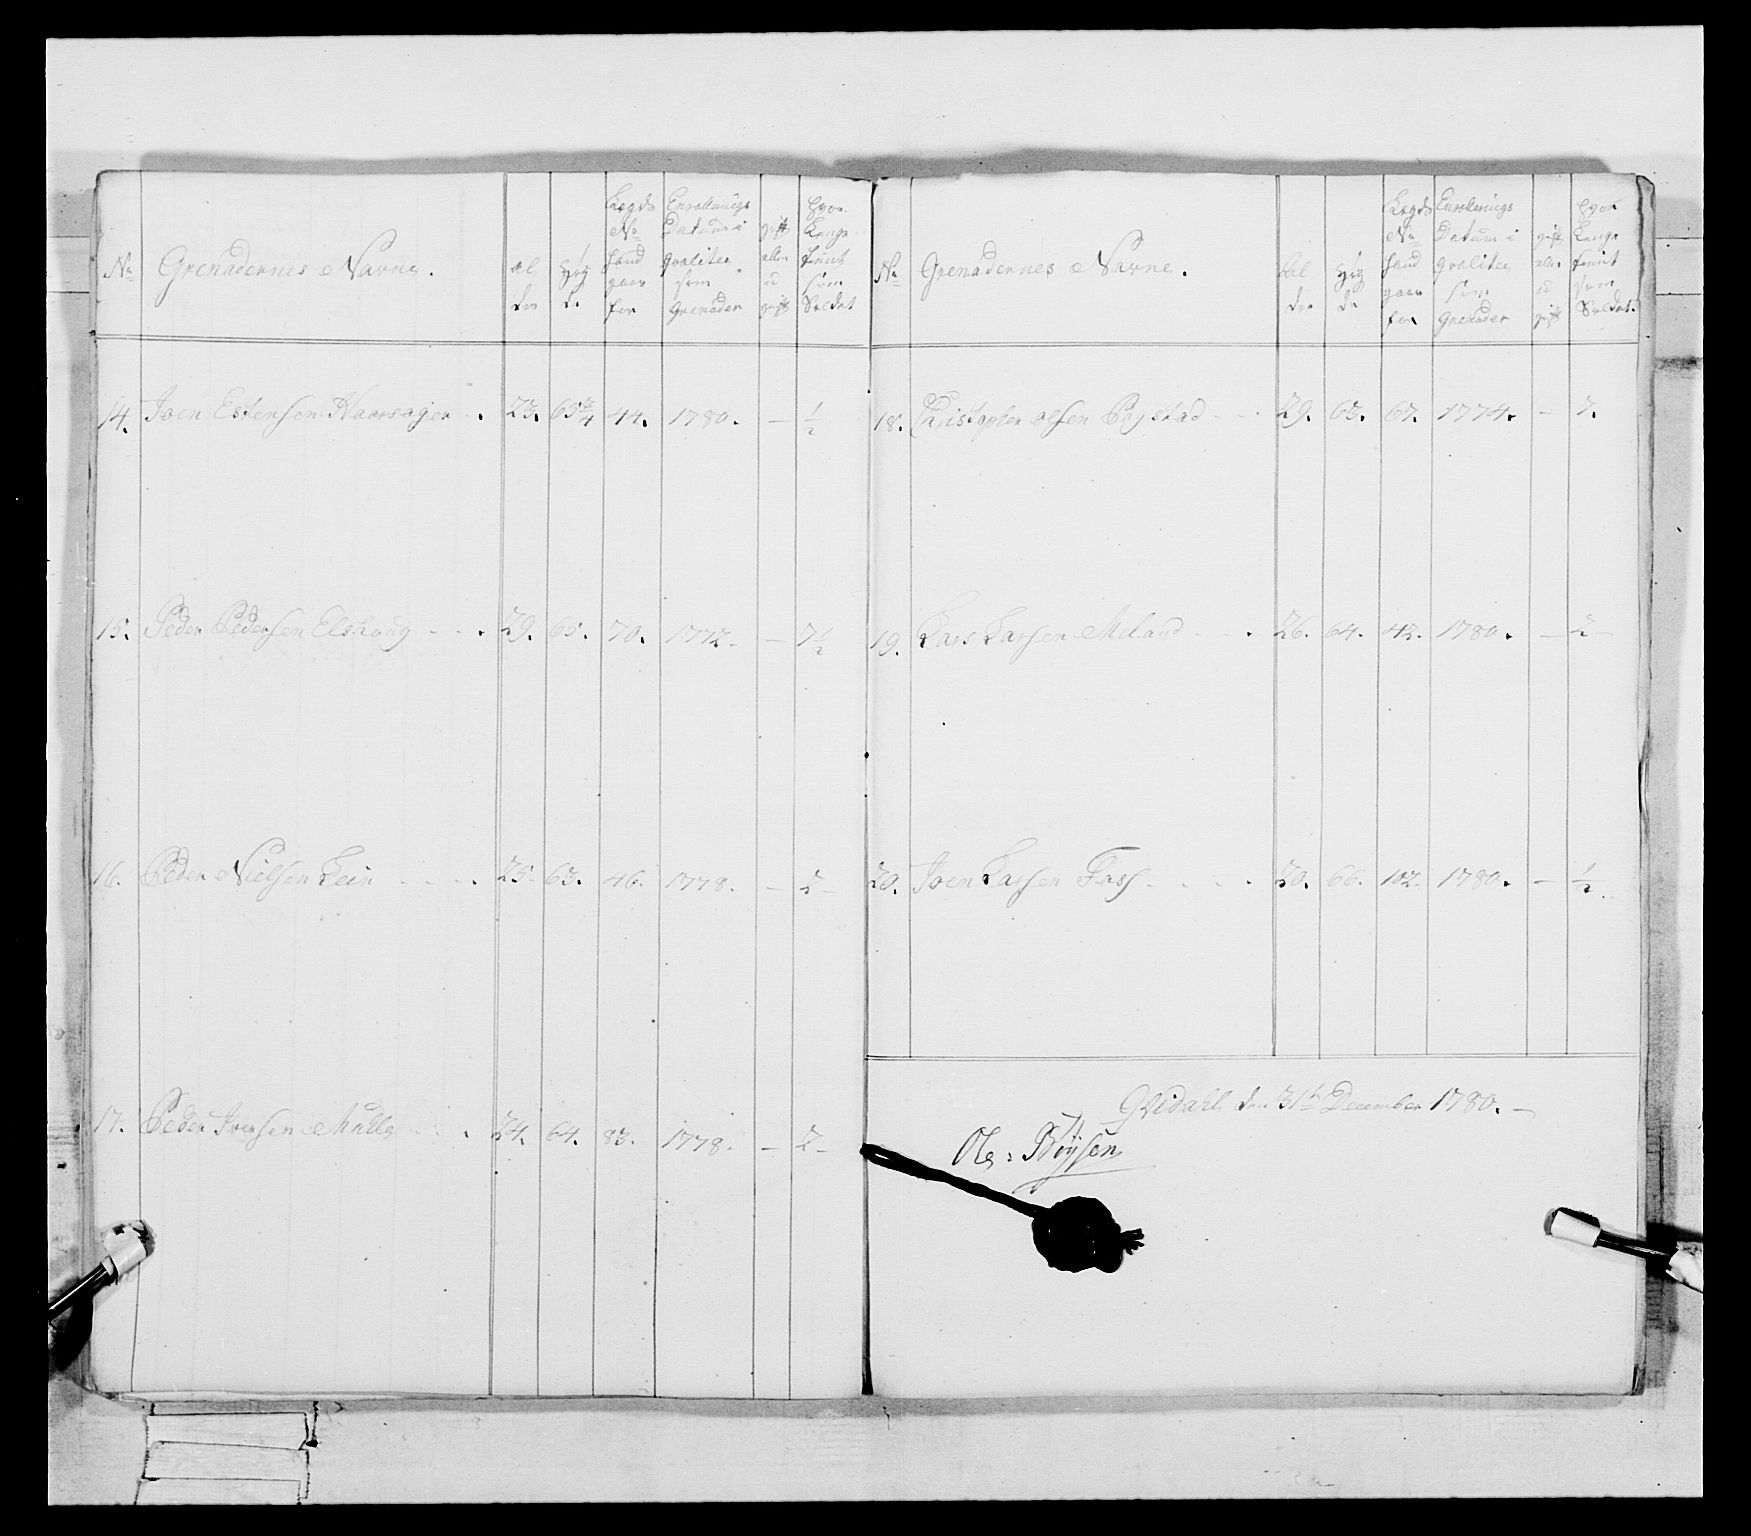 No
Grenadernes Navne.
al
der
Høy
de
Legds
No
hand
gaar
for
Enrollerings
Datum i
qvalitee
som
Grenader
gift
eller
u
gift
hvor
Lenge
tient
som
Soldat
14. Joen Estensen Haarsager . 23. 65¾ 44. 1780. — ½
15. Peder Pedersen Elshoug - - . 29. 65. 70. 1772. — 7½
16. Peder Nielsen Lein - - - . 25. 63. 46. 1778. — 2—
17. Peder Iversen Mülle - - . 24. 64. 83. 1778. — 2—
No
Grenadernes Navne.
Al
der
Høy
de
Legds
No
hand
gaar
for
Enrollerings
Datum i
qvalitee
som
Grenader
gift
eller
u
gift
hvor
Lenge
tient
som
Soldat.
18. Christopher olsen - - - 29. 63. 67. 1774. — 7.
19. Lars Larsen Meland - - . 26. 64. 42. 1780. — 2—
20. Joen Larsen Fass - - - . 20. 66. 102. 1780. — ½.
den 31te December 1780. —
Ole : Böÿsen